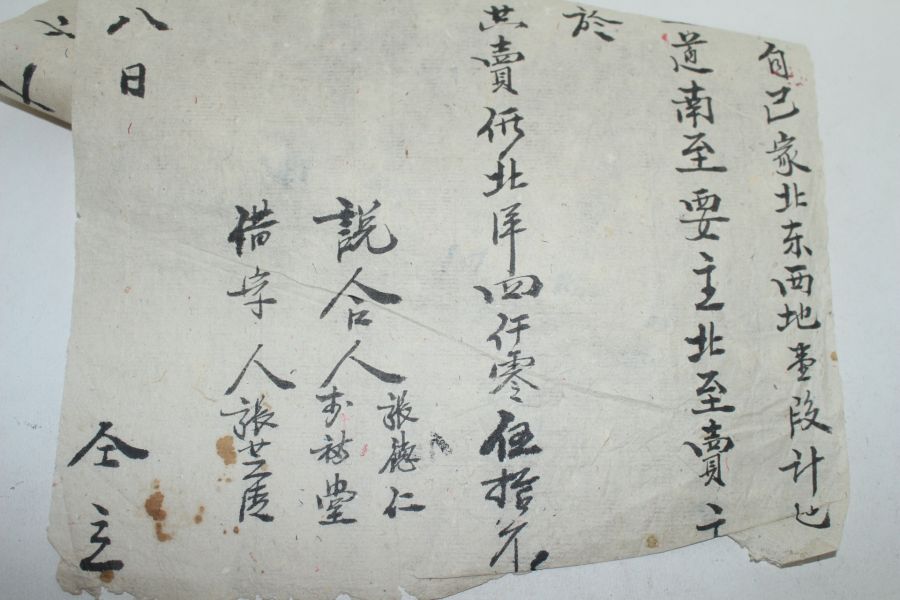 自己家北东西地壹段计地
道南至要主北至賣主
於
共賣價北洋四仟零伍拾介
說合人 張德仁
堂
借字人 張
八日 仝立